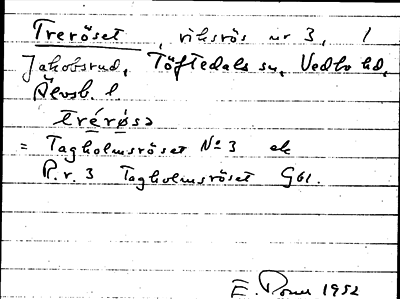 Treröset, riksrös nr 3, 1
Jakobsrud, Töftedals sn, Vedbo hd,
Älvsb. l
trérø̀sə
= Tagholmsröset No 3 ek
R.r. 3 Tagholmsröset GGl.
E. 1952